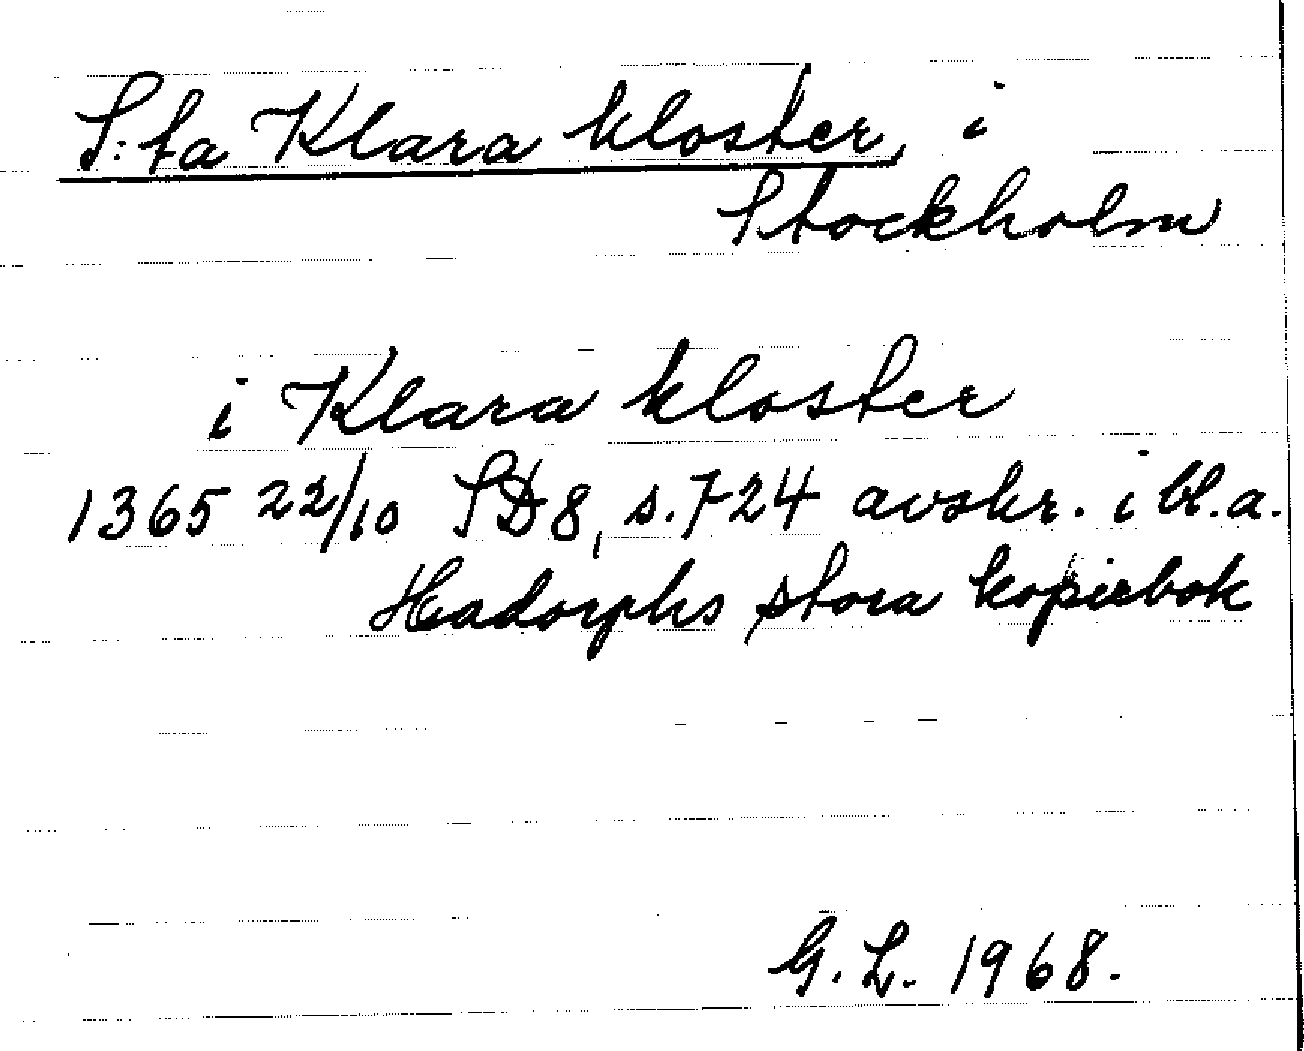 S:ta Klara kloster, i
Stockholm
i Klara kloster
1365 22/10 SD 8, s. 724 avskr. i bl.a.
Hadorphs stora kopiebok
G. L. 1968.